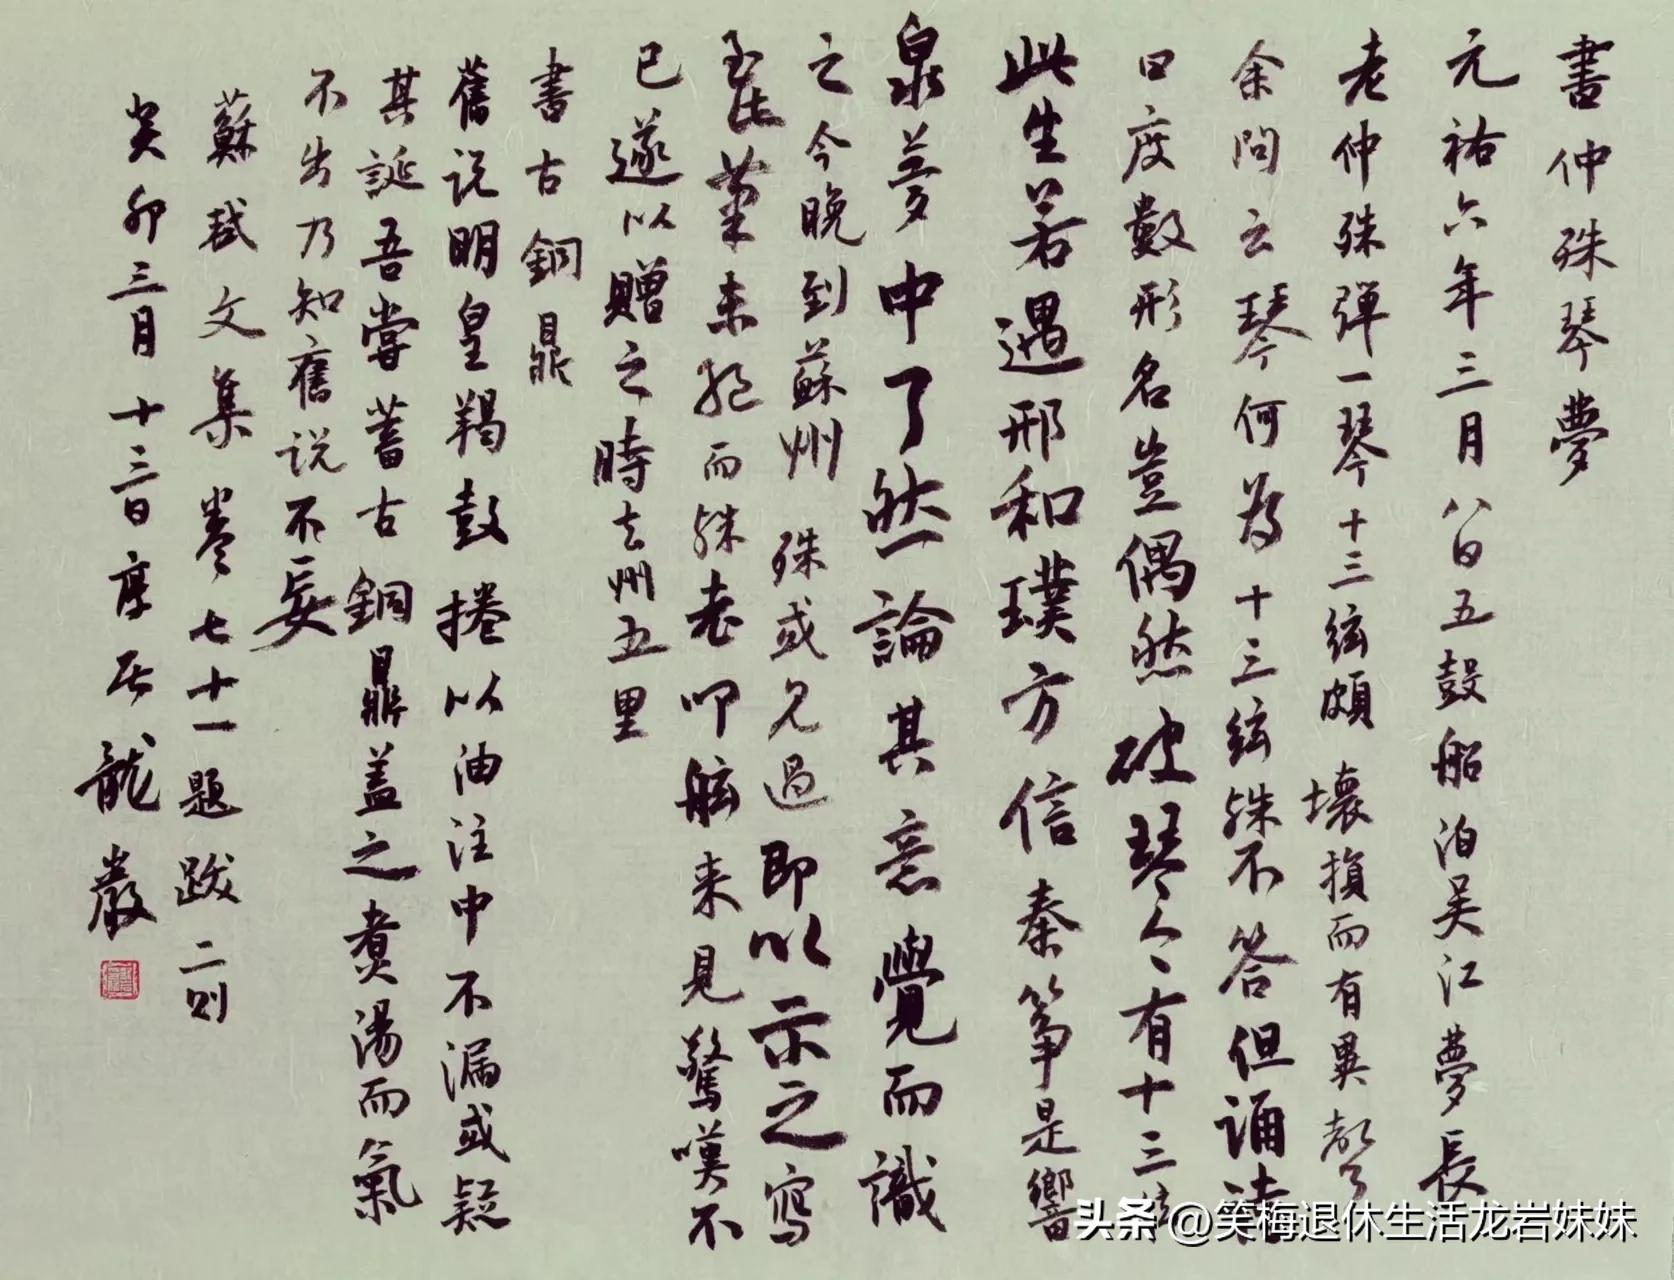 書仲殊琴夢
元祐六年三月八日五鼓船泊吴江夢長
老仲殊弹一琴十三弦頗壞損而有異聲
余問云琴何為十三弦殊不答但誦诗
曰度數形名豈偶然破琴今有十三弦
此生若遇邢和璞方信秦筝是響
泉夢中了然論其意覺而識
之今晚到蘇州殊或见過即以示之寫
至此筆未絕而殊老叩舷来見驚嘆不
已遂以贈之時去州五里
書古銅鼎
舊说明皇羯鼓捲以油注中不漏或疑
其誕吾嘗蓄古銅鼎盖之煮湯而氣
不出乃知舊说不妄
蘇軾文集卷七十一題跋二则
癸卯三月十三日龍巖
头条 @笑梅退休生活龙岩妹妹